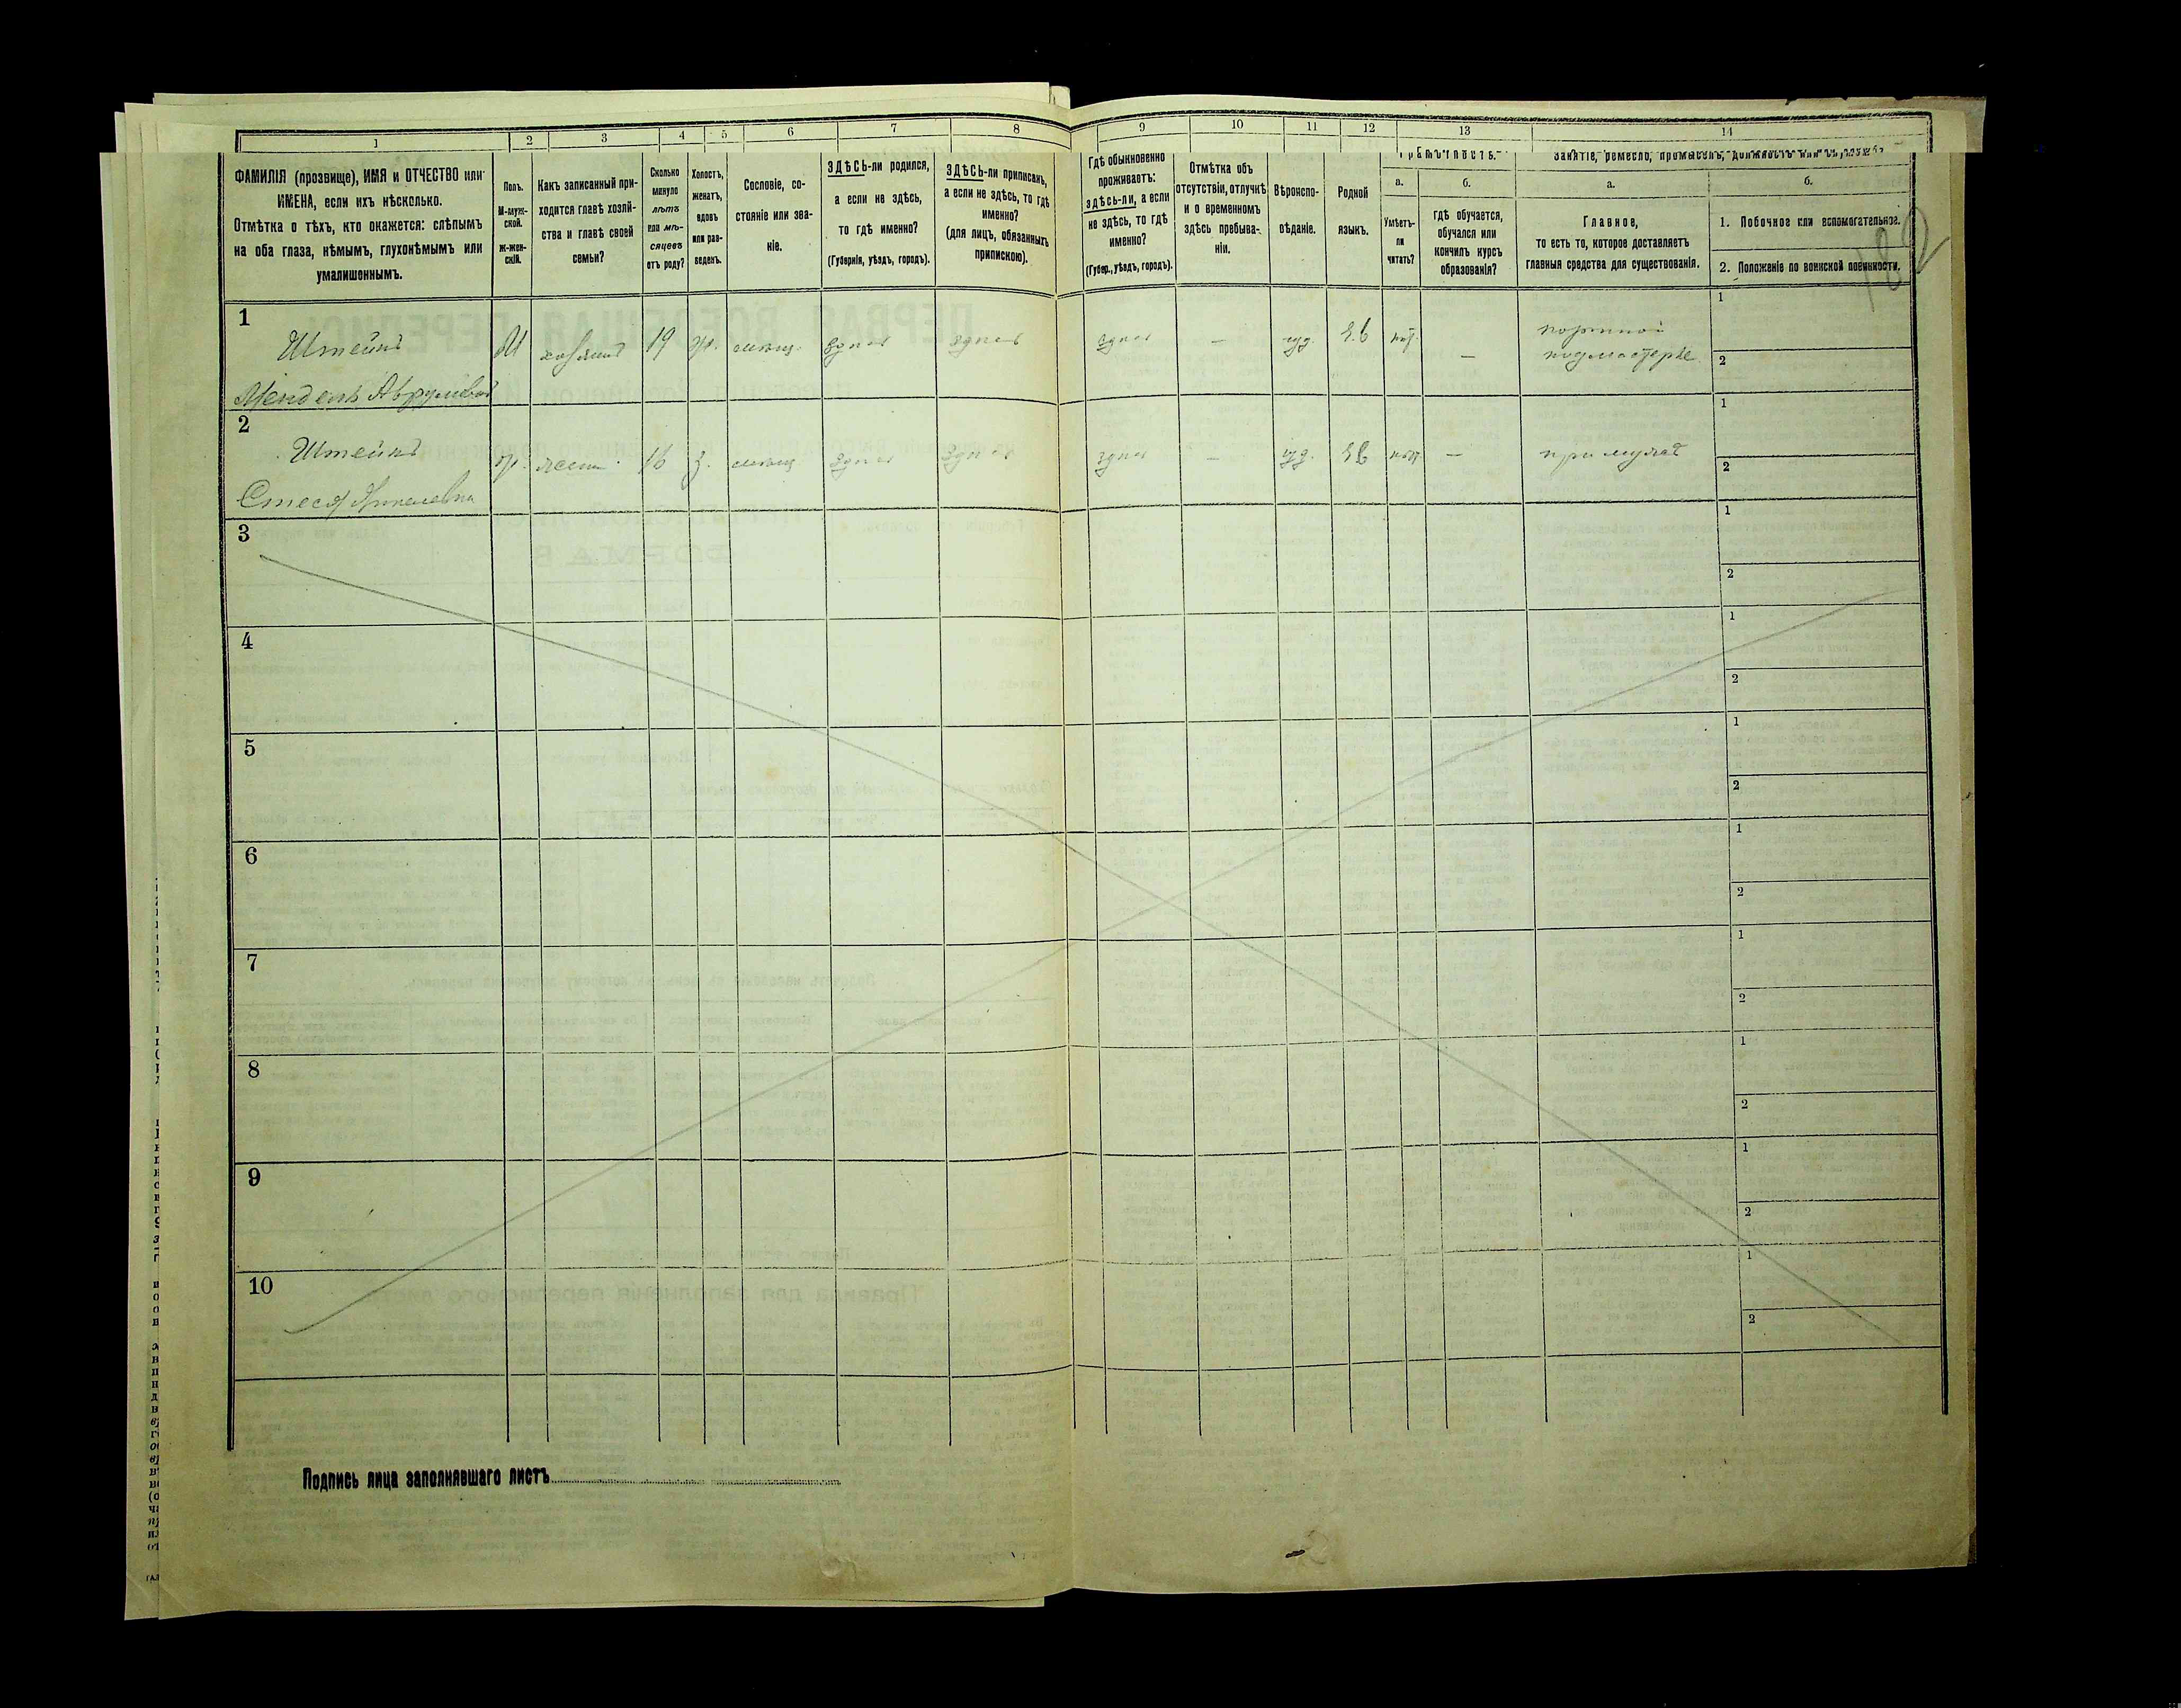 1 2 3 4 5 6 7 8 9 10 11 12 13 14
ФАМИЛІЯ (прозвище), ИМЯ и ОТЧЕСТВО или
ИМЕНА, если ихъ нѣсколько.
Отмѣтка о тѣхъ, кто окажется: слѣпымъ
на оба глаза, нѣмымъ, глухонѣмымъ или
умалишеннымъ.
Полъ.
М-муж-
ской.
Ж-жен-
скій.
Какъ записанный при-
ходится главѣ хозяй-
ства и главѣ своей
семьи?
Сколько
минуло
лѣтъ
или мѣ-
сяцевъ
отъ роду?
Холостъ,
женатъ,
вдовъ
или раз-
веденъ.
Сословіе, со-
стояніе или зва-
ніе.
ЗДѢСЬ-ли родился,
а если не здѣсь,
то гдѣ именно?
(Губернія, уѣздъ, городъ).
ЗДѢСЬ-ли приписанъ,
а если не здѣсь, то гдѣ
именно?
(для лицъ, обязанныхъ
припискою).
Гдѣ обыкновенно
проживаетъ:
здѣсь-ли, а если
не здѣсь, то гдѣ
именно?
(Губер., уѣздъ, городъ).
Отмѣтка объ
отсутствіи, отлучкѣ
и о временномъ
здѣсь пребыва-
ніи.
Вѣроиспо-
вѣданіе.
Родной
языкъ.
Грамотность.
а.
Умѣетъ-
ли
читать?
б.
гдѣ обучается,
обучался или
кончилъ курсъ
образованія?
Занятіе, ремесло, промыселъ, должность или служба.
а.
Главное,
то есть то, которое доставляетъ
главныя средства для существованія.
б.
1. Побочное или вспомогательное.
2. Положеніе по воинской повинности.
182
1
Штейнъ М хозяинъ 19 ж. мѣщ. здѣсь здѣсь здѣсь — іуд. Ев нѣт. — портной
подмастерье
Мендель Аврумовъ
1
2
2
Штейнъ ж. жена 16 з. мѣщ здѣсь здѣсь здѣсь — іуд. Ев нѣт — при мужѣ
Стеся
1
2
3
1
2
4
1
2
5
1
2
6
1
2
7
1
2
8
1
2
9
1
2
10
1
2
Подпись лица заполнявшаго листъ